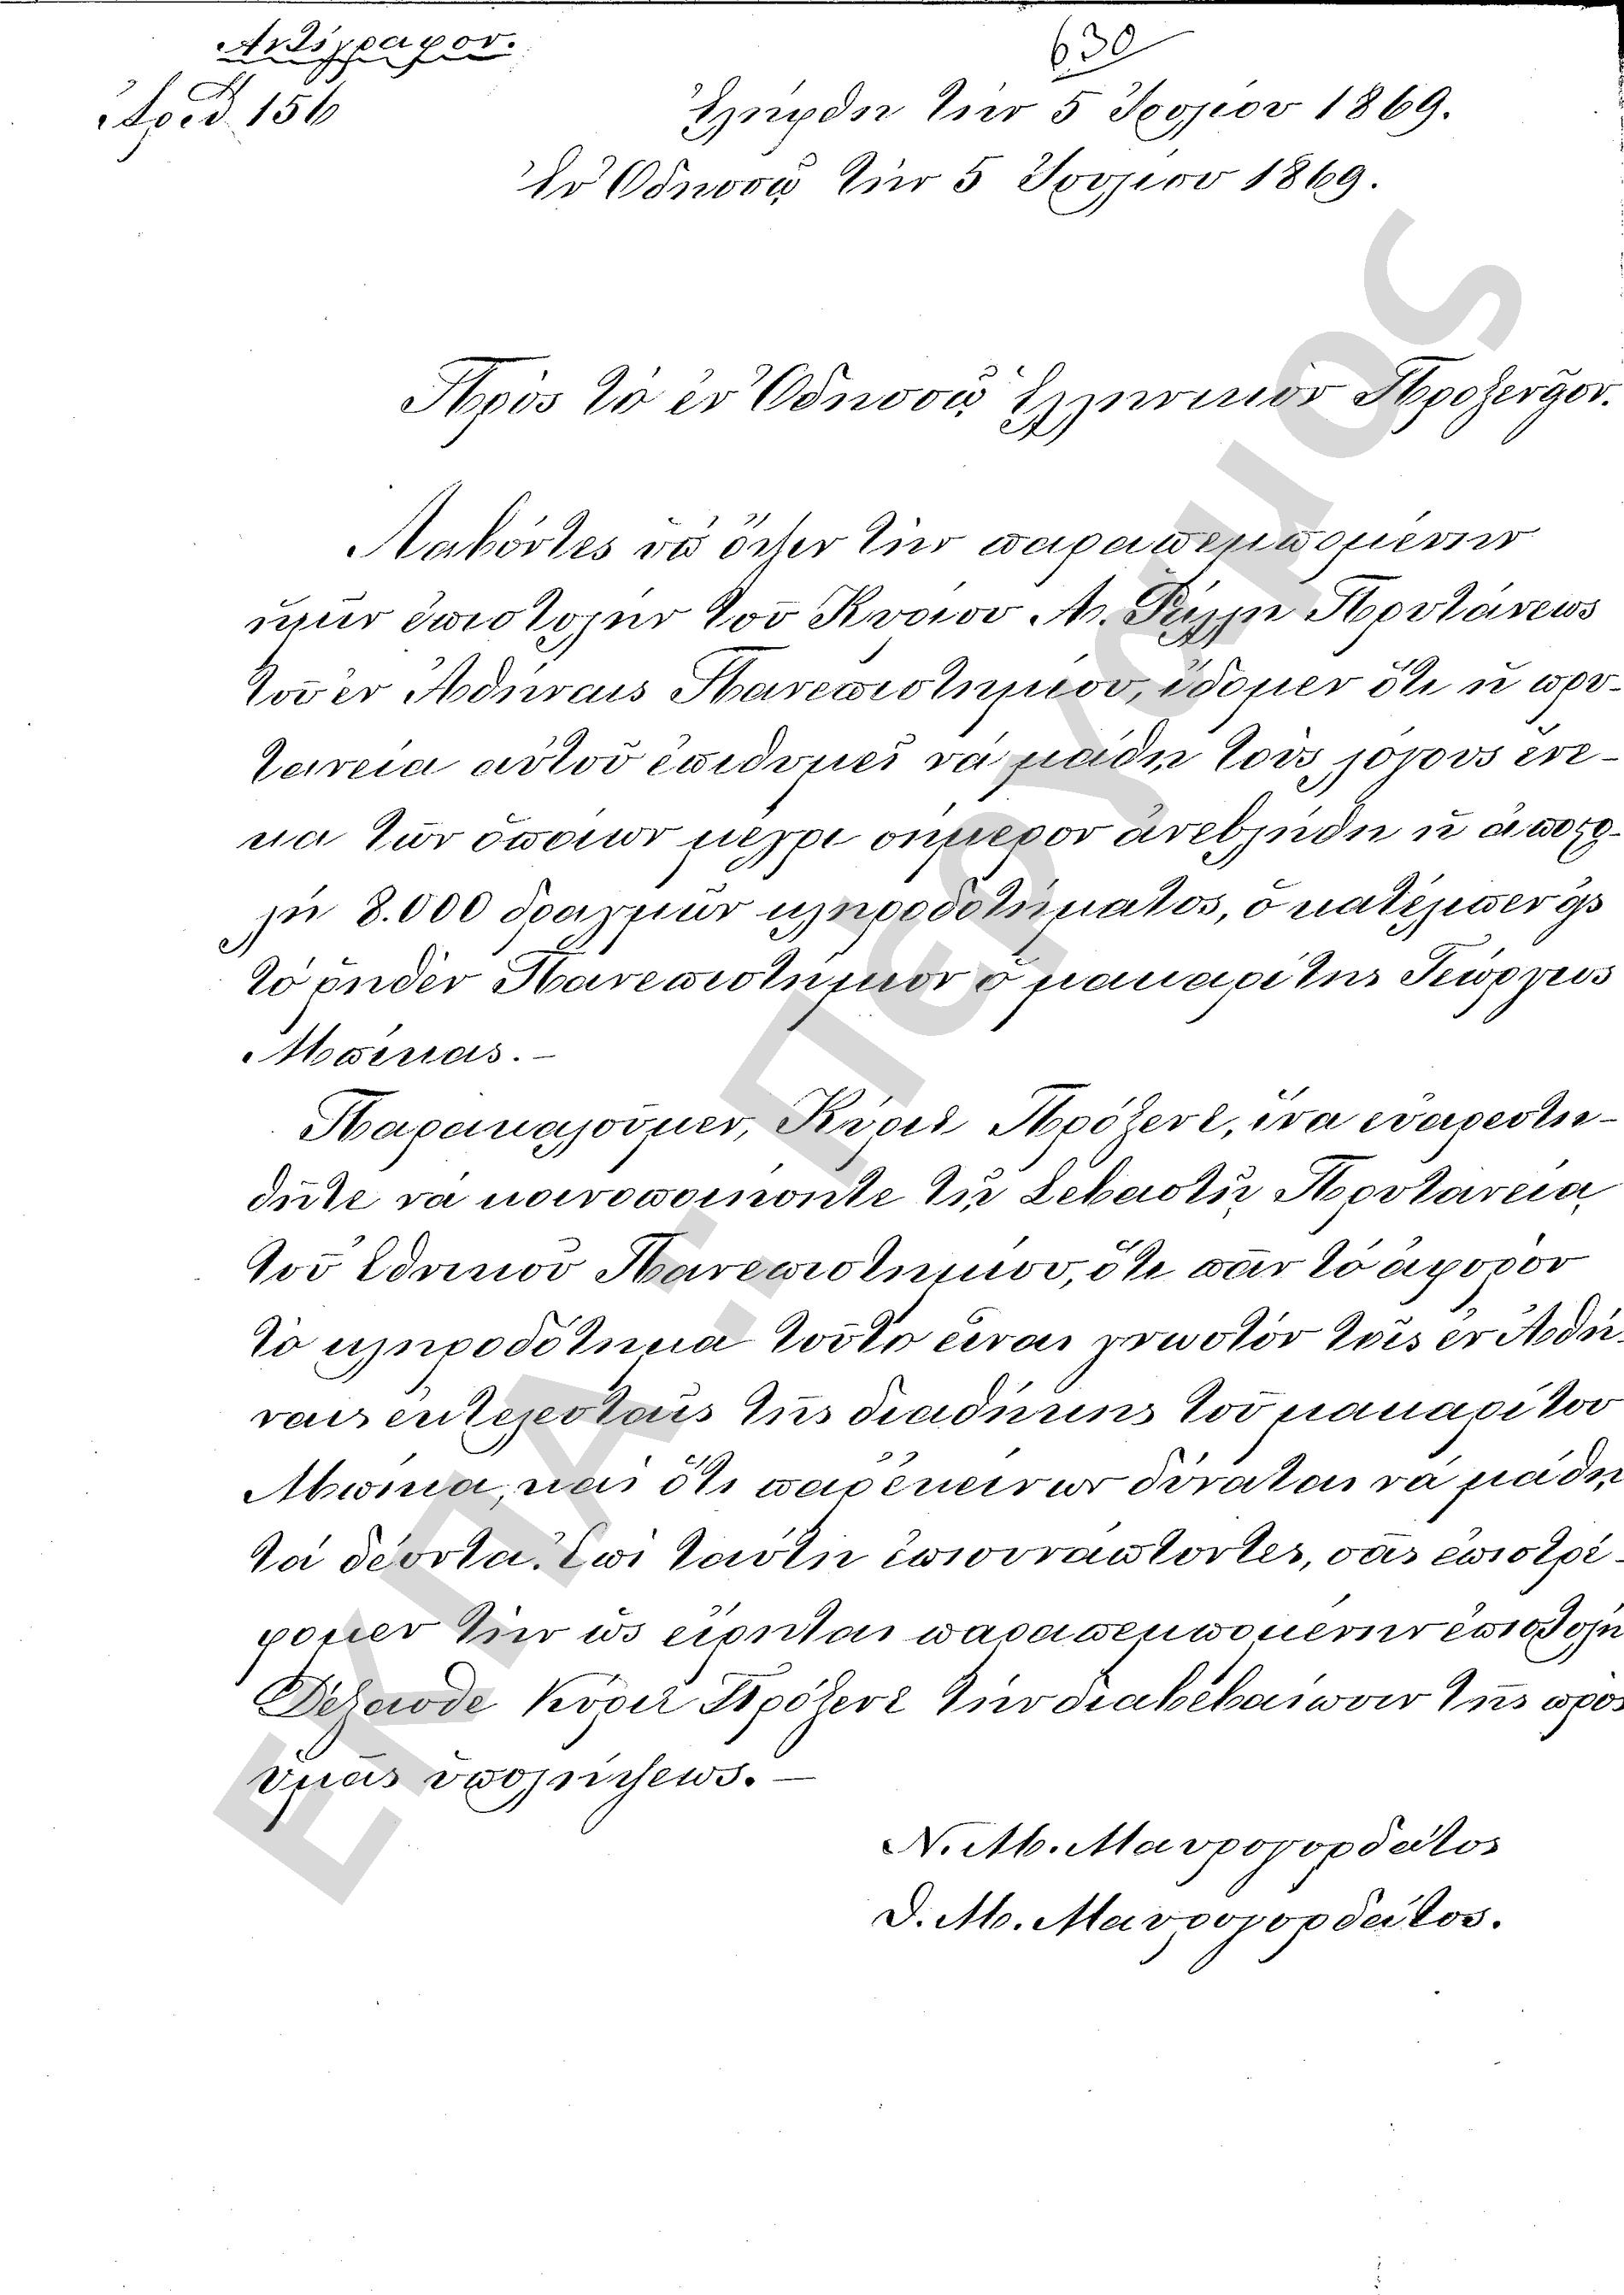 Ἀντίγραφον.
Ἀριθ. 156
630
Ἐλήφθη τὴν 5 Ἰουλίου 1869.
Ἐν Ὀδησσῷ τὴν 5 Ἰουλίου 1869.
Πρὸς τὸ ἐν Ὀδησσῷ Ἑλληνικὸν Προξενεῖον.
Λαβόντες ὑπ' ὄψιν τὴν παραπεμπομένην
ἡμῖν ἐπιστολὴν τοῦ Κυρίου Α. Ῥάλλη Πρυτάνεως
τοῦ ἐν Ἀθήναις Πανεπιστημίου, εἴδομεν ὅτι ἡ πρυ-
τανεία αὐτοῦ ἐπιθυμεῖ νὰ μάθῃ τοὺς λόγους ἕνε-
κα τῶν ὁποίων μέχρι σήμερον ἀνεβλήθη ἡ ἀποστο-
λὴ 8.000 δραχμῶν κληροδοτήματος, ὃ κατέλιπεν εἰς
τὸ ῥηθὲν Πανεπιστήμιον ὁ μακαρίτης Γεώργιος
Μπίκας. -
Παρακαλοῦμεν, Κύριε Πρόξενε, ἵνα εὐαρεστη-
θῆτε νὰ κοινοποιήσητε τῇ Σεβαστῇ Πρυτανείᾳ
τοῦ Ἐθνικοῦ Πανεπιστημίου, ὅτι πᾶν τὸ ἀφορῶν
τὸ κληροδότημα τοῦτο εἶναι γνωστὸν τοῖς ἐν Ἀθή-
ναις ἐκτελεσταῖς τῆς διαθήκης τοῦ μακαρίτου
Μπίκα, καὶ ὅτι παρ' ἐκείνων δύναται νὰ μάθῃ
τὰ δέοντα. Ἐπὶ τούτῳ ἐπισυνάπτοντες, σᾶς ἐπιστρέ-
φομεν τὴν ὡς εἴρηται παραπεμπομένην ἐπιστολὴν
Δέξασθε Κύριε Πρόξενε τὴν διαβεβαίωσιν τῆς πρὸς
ὑμᾶς ὑπολήψεως. -
Ν. Μ. Μαυρογορδάτος
Δ. Μ. Μαυρογορδάτος.
ΕΚΠΑ - Πέργαμος